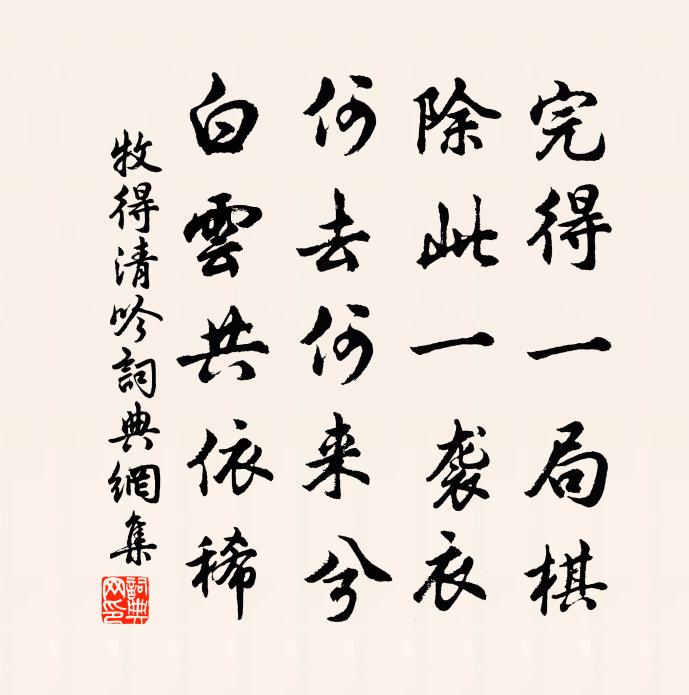 完得一局棋
除此一袭衣
何去何来兮
白雲共依稀
牧得清吟詞典網集
詞典网印